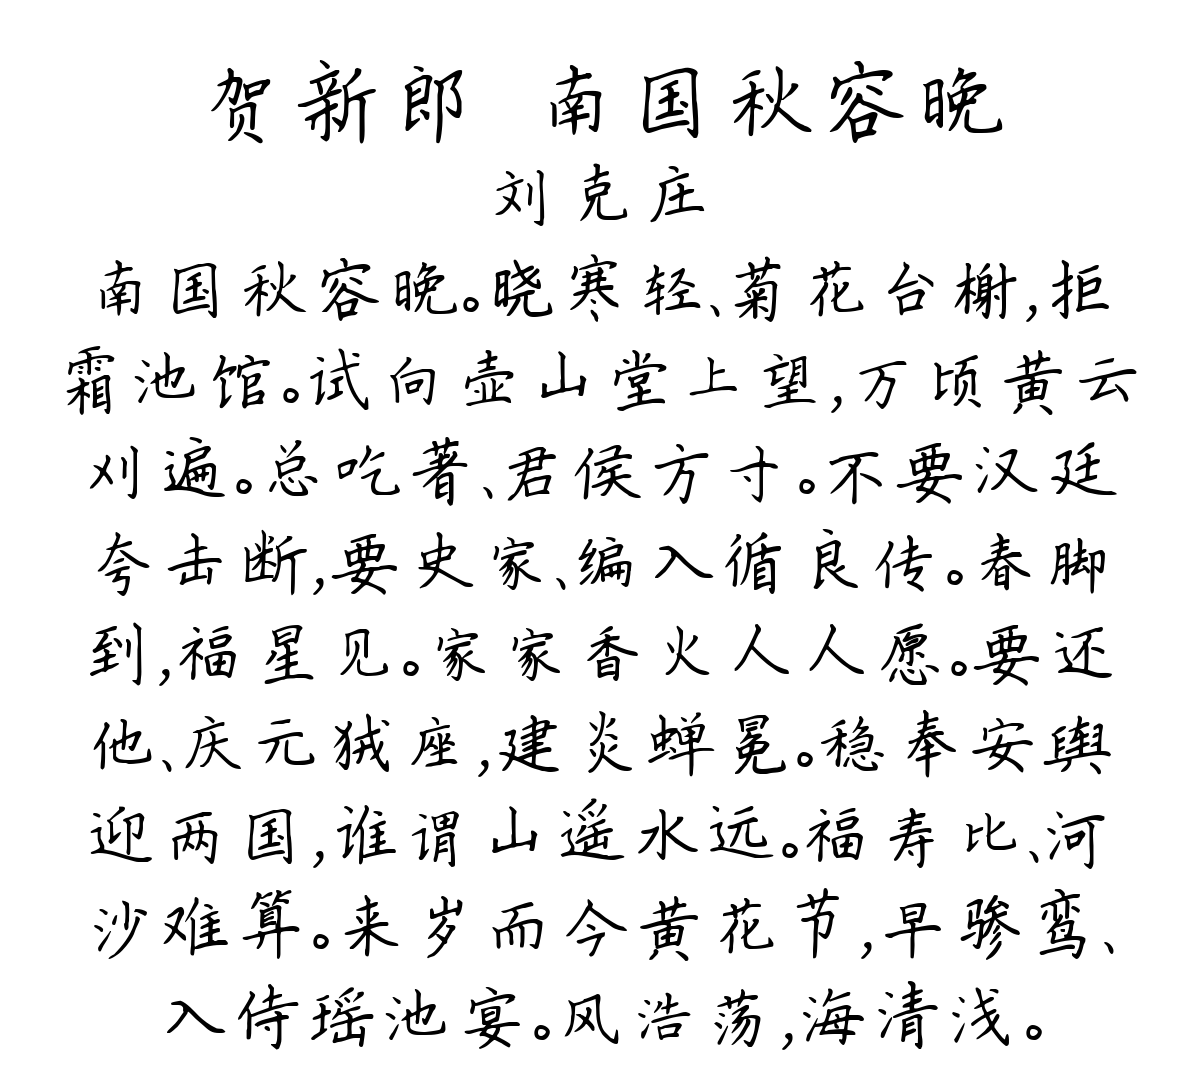 贺新郎 南国秋容晚
刘克庄
南国秋容晚。晓寒轻、菊花台榭,拒
霜池馆。试向壶山堂上望,万顷黄云
刈遍。总吃著、君侯方寸。不要汉廷
夸击断,要史家、编入循良传。春脚
到,福星见。家家香火人人愿。要还
他、庆元狨座,建炎蝉冕。稳奉安舆
迎两国,谁谓山遥水远。福寿比、河
沙难算。来岁而今黄花节,早骖鸾、
入侍瑶池宴。风浩荡,海清浅。